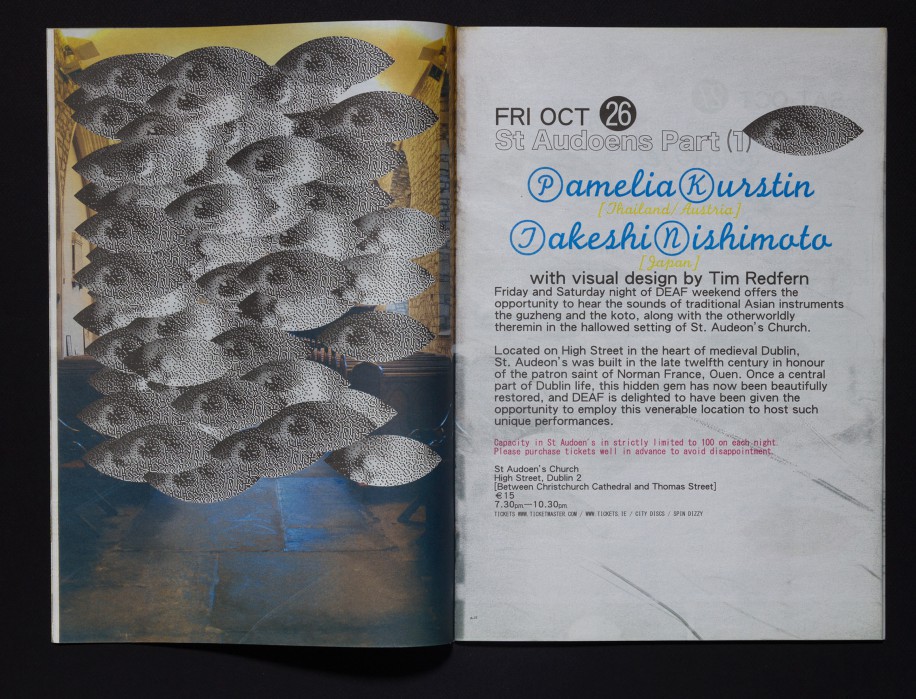 FRI OCT 26
St Audoens Part (1)
Pamelia Kurstin
[Thailand/Austria]
Takeshi Nishimoto
[Japan]
with visual design by Tim Redfern
Friday and Saturday night of DEAF weekend offers the
opportunity to hear the sounds of traditional Asian instruments
the guzheng and the koto, along with the otherworldly
theremin in the hallowed setting of St. Audeon's Church.
Located on High Street in the heart of medieval Dublin,
St. Audeon's was built in the late twelfth century in honour
of the patron saint of Norman France, Ouen. Once a central
part of Dublin life, this hidden gem has now been beautifully
restored, and DEAF is delighted to have been given the
opportunity to employ this venerable location to host such
unique performances.
Capacity in St Audoen's in strictly limited to 100 on each night.
Please purchase tickets well in advance to avoid disappointment.
St Audoen's Church
High Street, Dublin 2
[Between Christchurch Cathedral and Thomas Street]
€15
7.30pm—10.30pm
TICKETS WWW.TICKETMASTER.COM / WWW.TICKETS.IE / CITY DISCS / SPIN DIZZY